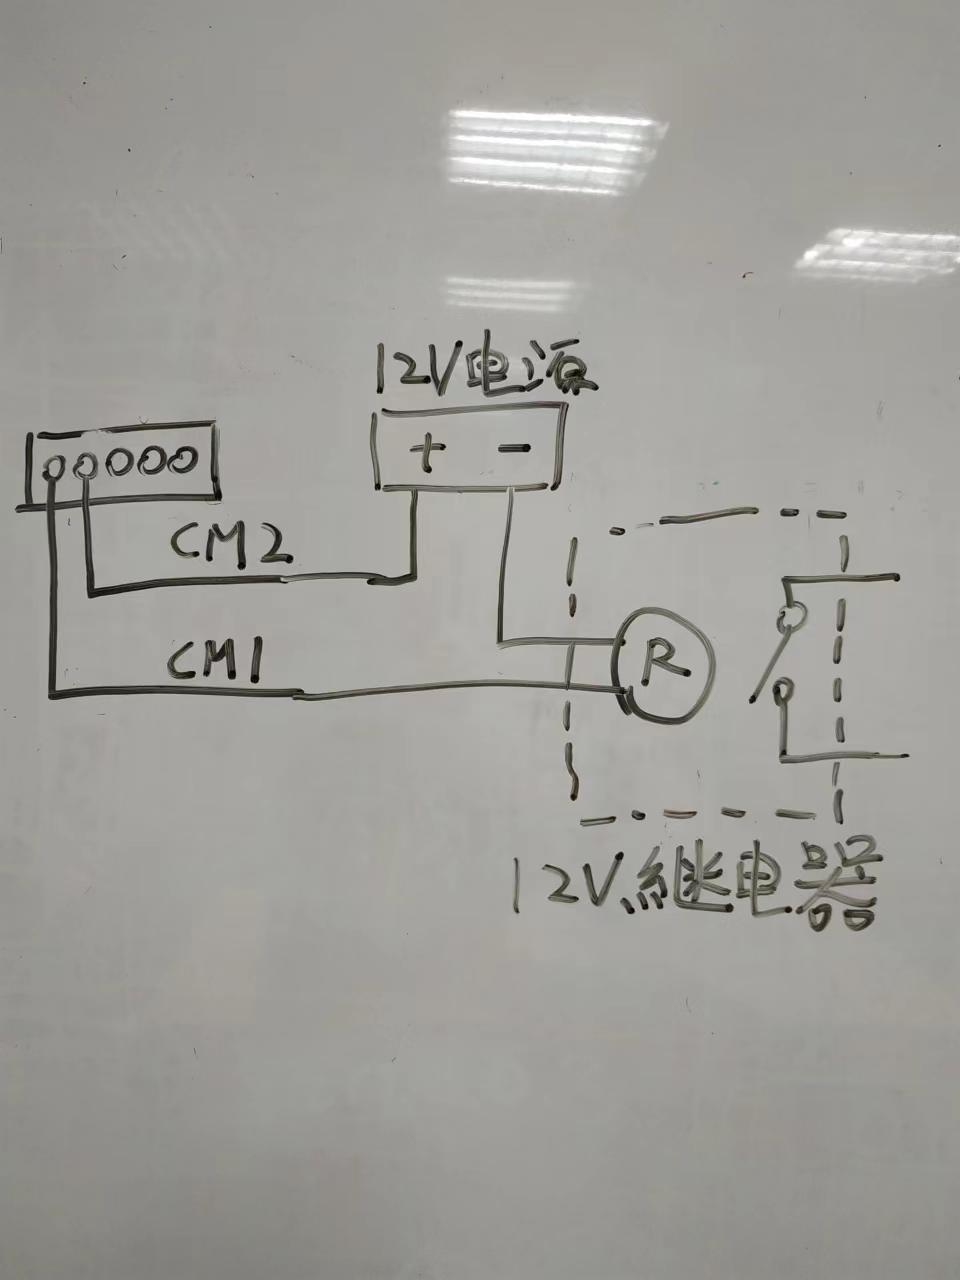 12V电源
+ -
CM2
CM1
R
12V継电器